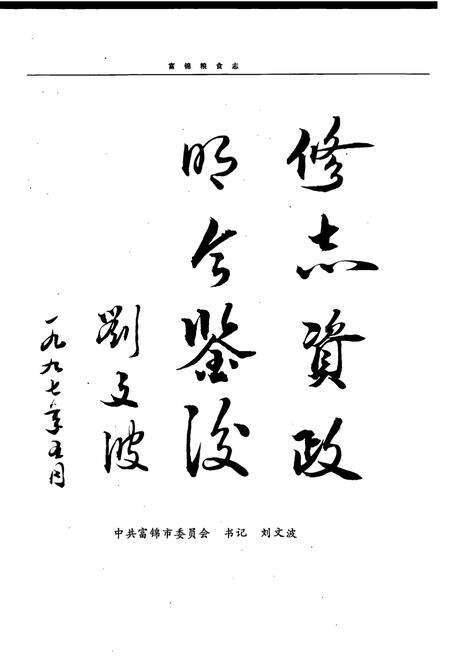 富锦粮食志
修志資政
明今鉴後
劉文波
一九九七年五月
中共富锦市委员会 书记 刘文波